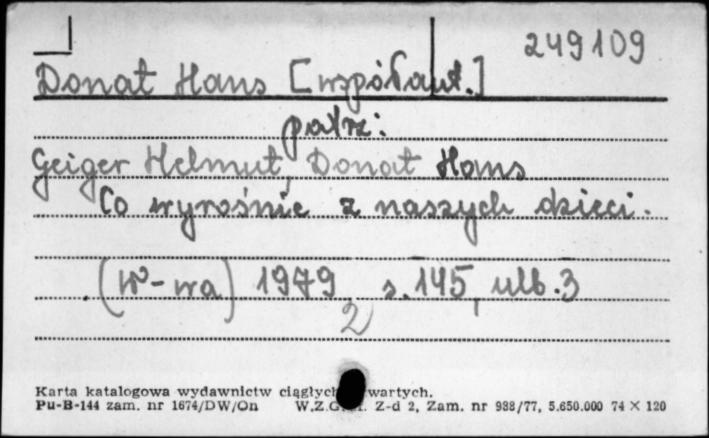 249109
Donat Hans [współaut.]
patrz:
Geiger Helmut, Donat Hans
Co wyrośnie z naszych dzieci.
(W-wa) 1979, s. 145, ulb. 3
2
Karta katalogowa wydawnictw ciągłych wartych.
Pu-B-144 zam. nr 1674/DW/On W.Z.G. Z-d 2, Zam. nr 988/77, 5.650.000 74 X 120